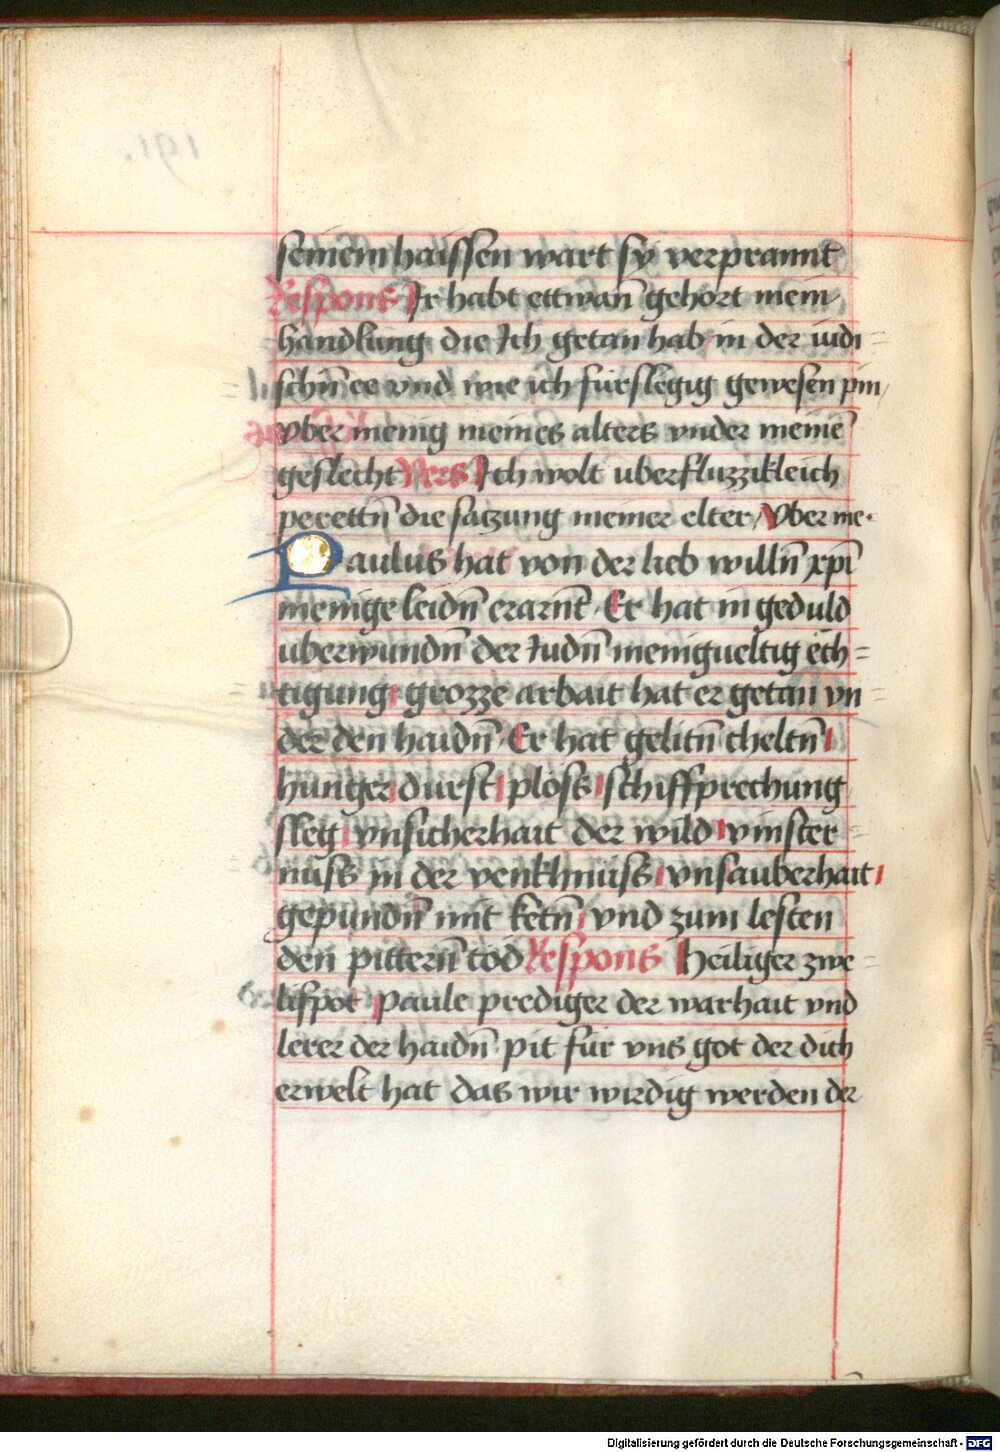 seinem haissen wart sy verprannt
Respons Ir habt ettwan̄ gehort mein
handlung die Ich getan hab in der iudi=
schn̄ ee vnd wie ich furslegig gewesen pin
vber menig meines alters vnder meinē
geslecht Vers Ich wolt uberfluzzikleich
perettn̄ die satzung meiner elter Vber me.
Paulus hat von der lieb willn̄ xpī
menige leidn̄ erarnt̄ Er hat in geduld
uberwundn̄ der Iudn̄ menigueltig ech=
tigung grozze arbait hat er getan vn=
der den haidn̄ Er hat gelitn̄ cheltn̄
hunger durst ploss schiffprechung
sleg vnsicherhait der wild vinster=
nuss in der venkhnuss vnsauberhait
gepundn̄ mit ketn̄ vnd zum lesten
den pittern̄ tod Respons Heiliger zwe=
lifpot paule prediger der warhait vnd
lerer der haidn̄ pit für vns got der dich
erwelt hat das wir wirdig werden der
Digitalisierung gefördert durch die Deutsche Forschungsgemeinschaft - DFG